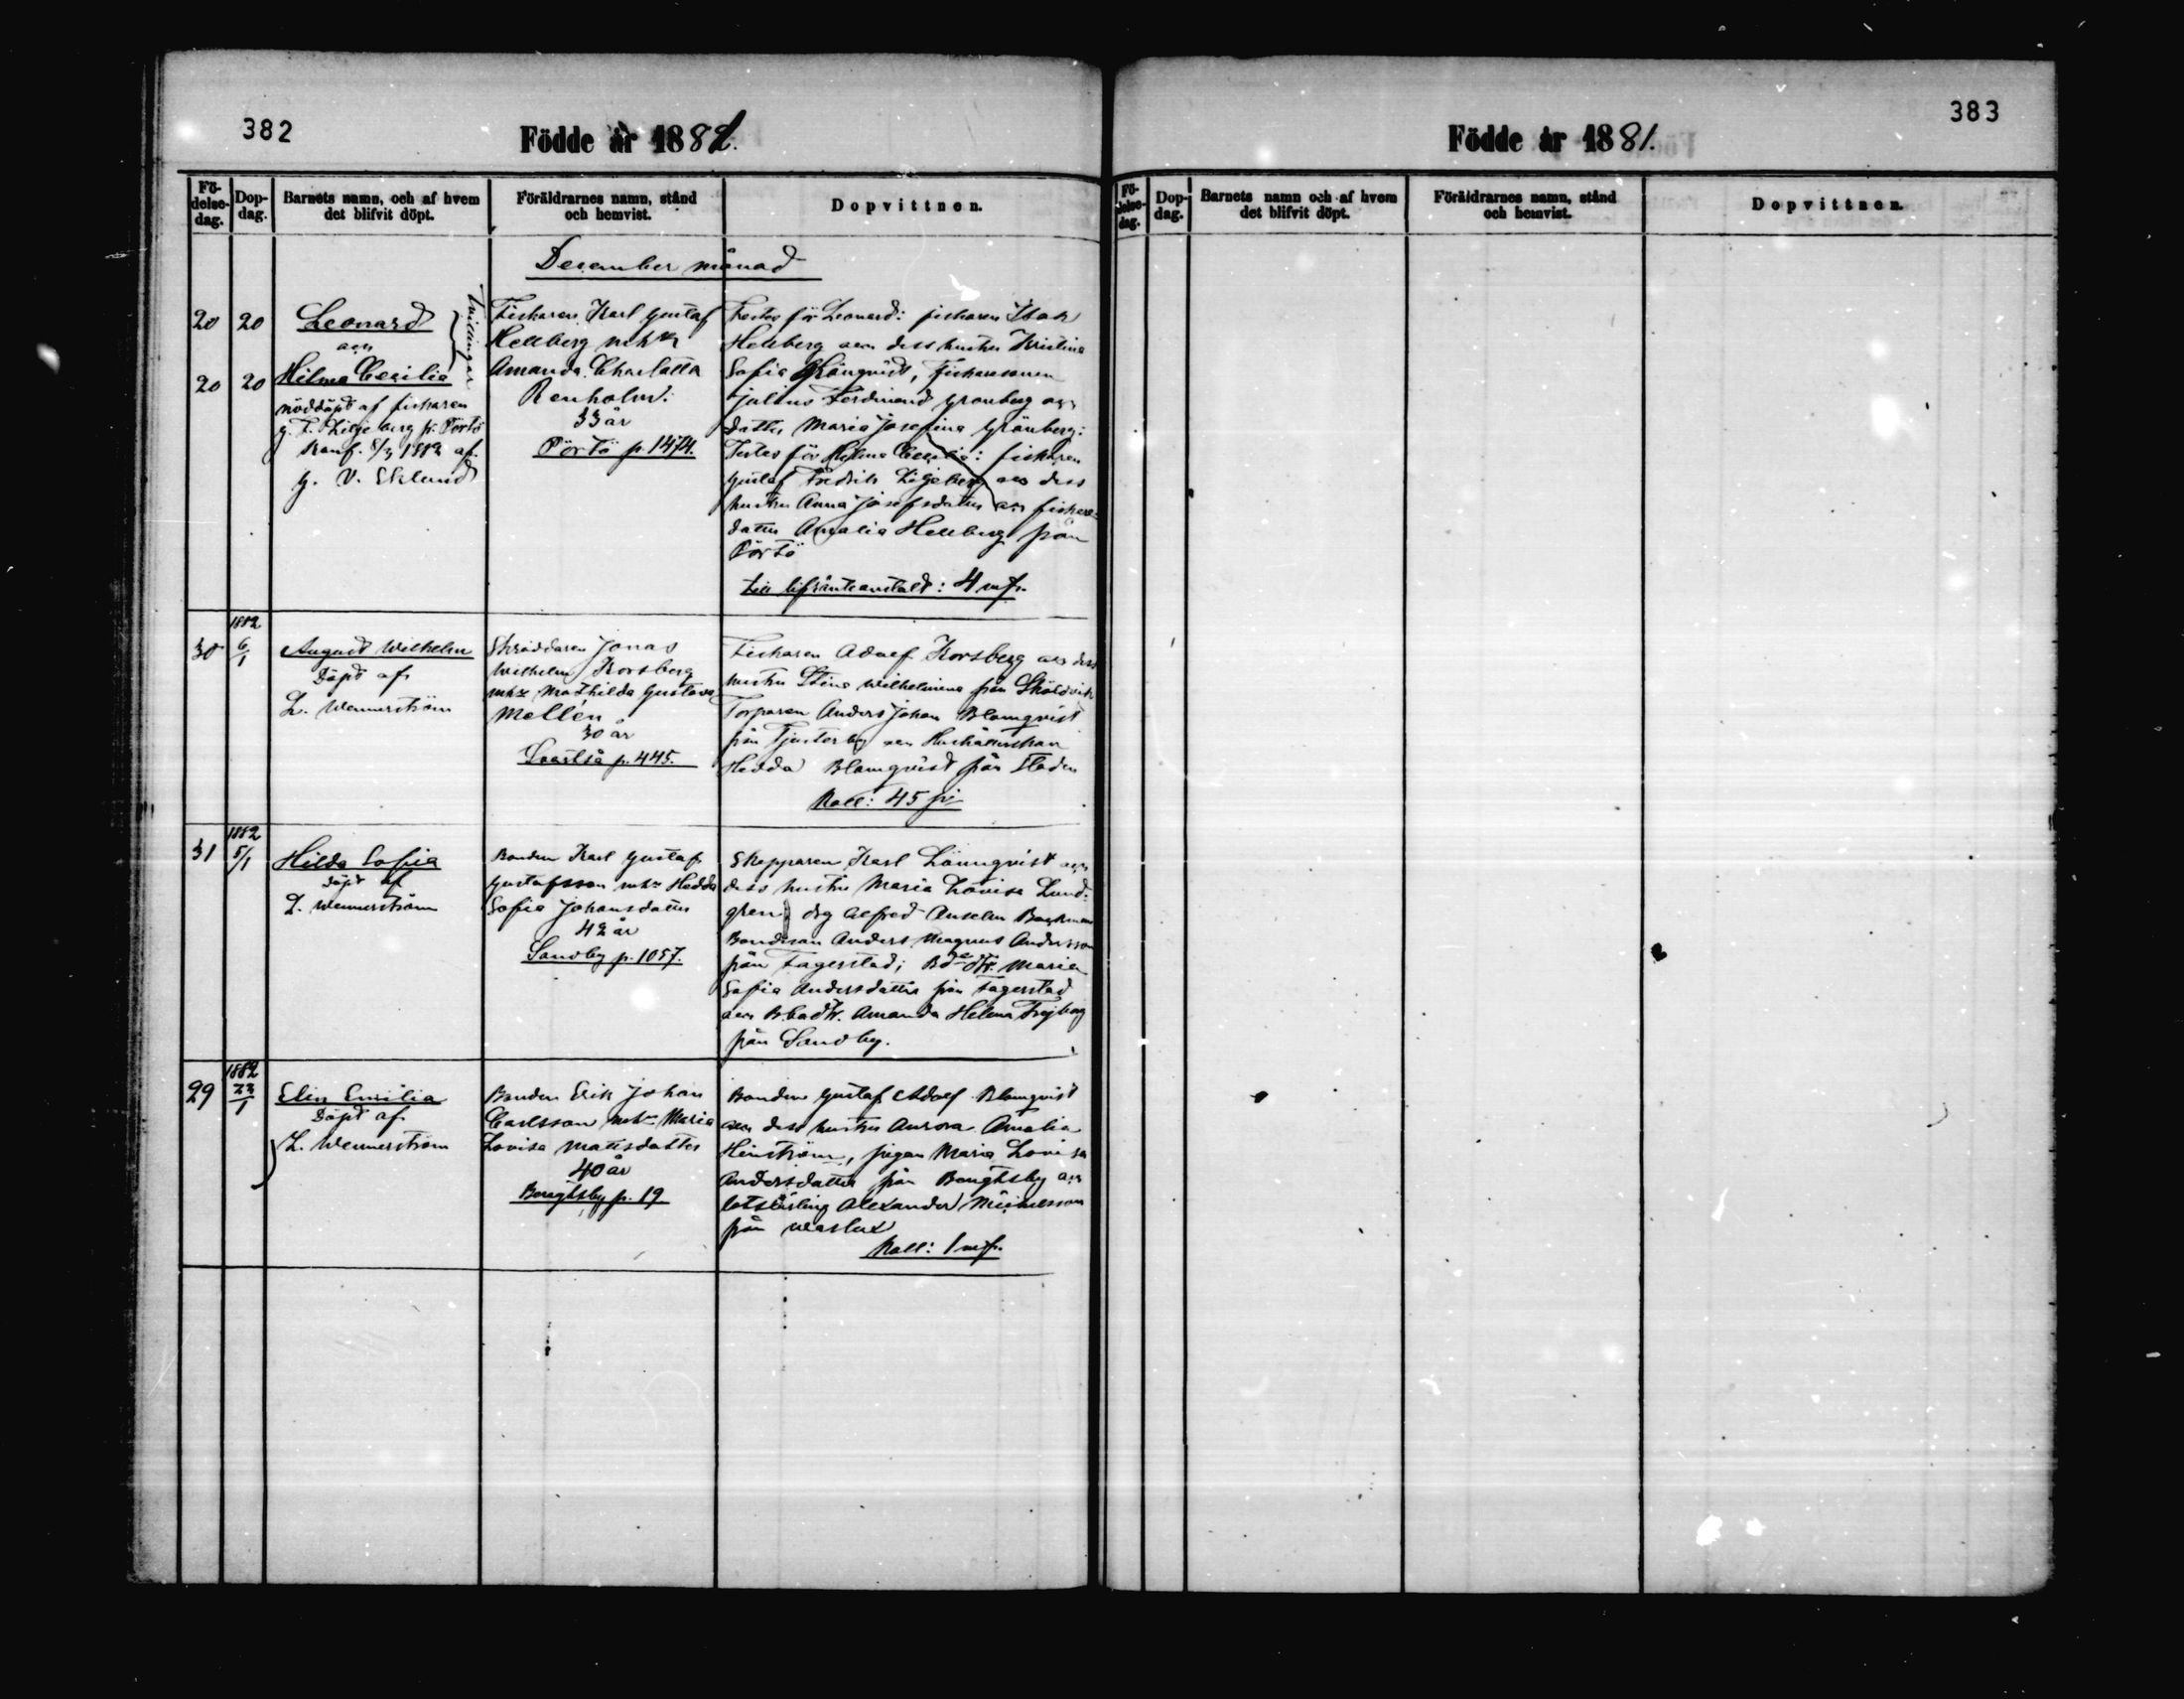 382
Födde år 1881.
Fö-
delse-
dag.
Dop-
dag.
Barnets namn, och af hvem
det blifvit döpt.
Föräldrarnes namn, stånd
och hemvist.
Dopvittnen.
December månad
20 20
Leonard
och
20 20
Hilma Cecilia
Tvillingar
nöddöpt af fiskaren
G. F. Liljeberg fr. Pörtö
Konf. 8/3 1882 af
G. V. Eklund
Fiskaren Karl Gustaf
Hellberg m.h.
Amanda Charlotta
Renholm:
33 år
Pörtö p. 1474.
Testes för Leonard: fiskaren Isak
Hellberg och dess hustru Kristina
Sofia Grönqvist, Fiskaresonen
Julius Ferdinand Grönberg och
dotter Maria Josefina Grönberg:
Testes för Hilma Cecilia: fiskaren
Gustaf Fredrik Liljeberg och dess
hustru Anna Josefsdotter och fiskare-
dotter Amalia Hellberg från
Pörtö
till lifränteanstalt: 4 mf.
30
1882
6/1
August Wilhelm
Döpt af
L. Wennerström
Skräddaren Jonas
Wilhelm Korsberg
mh Mathilda Gustava
Mellén
30 år
Svartså p. 445.
Fiskaren Adolf Korsberg och dess
hustru Stina Wilhelmina från Sköldvik
Torparen Anders Johan Blomqvist
från Tjusterby och Hushållerskan
Hedda Blomqvist från Staden
Koll: 45 pi
31
1882
5/1
Hilda Sofia
döpt af
L. Wennerström
Bonden Karl Gustaf
Gustafsson mh Hedda
Sofia Johansdotter
42 år
Sandby p. 1057.
Skepparen Karl Lönnqvist och
dess hustru Maria Lovisa Lund-
gren drg Alfred Anselm
Bondeson Anders Magnus Andersson
från Fagerstad; Bdedtr. Maria
Sofia Andersdotter från Fagerstad
och Amanda Helena
från Sandby.
29
1882
23/1
Elin Emilia
Döpt af
L. Wennerström
Bonden Erik Johan
Carlsson mh Maria
Lovisa Matsdotter
40 år
Bengtsby p. 19
Bonden Gustaf Adolf Blomqvist
och dess hustru Aurora Amalia
Henström, pigan Maria Lovisa
Andersdotter från Bengtsby och
lotslärling Alexander Michelsson
från
Koll: 1 mf.
383
Födde år 1881.
Fö-
delse-
dag.
Dop-
dag.
Barnets namn och af hvem
det blifvit döpt.
Föräldrarnes namn, stånd
och hemvist.
Dopvittnen.